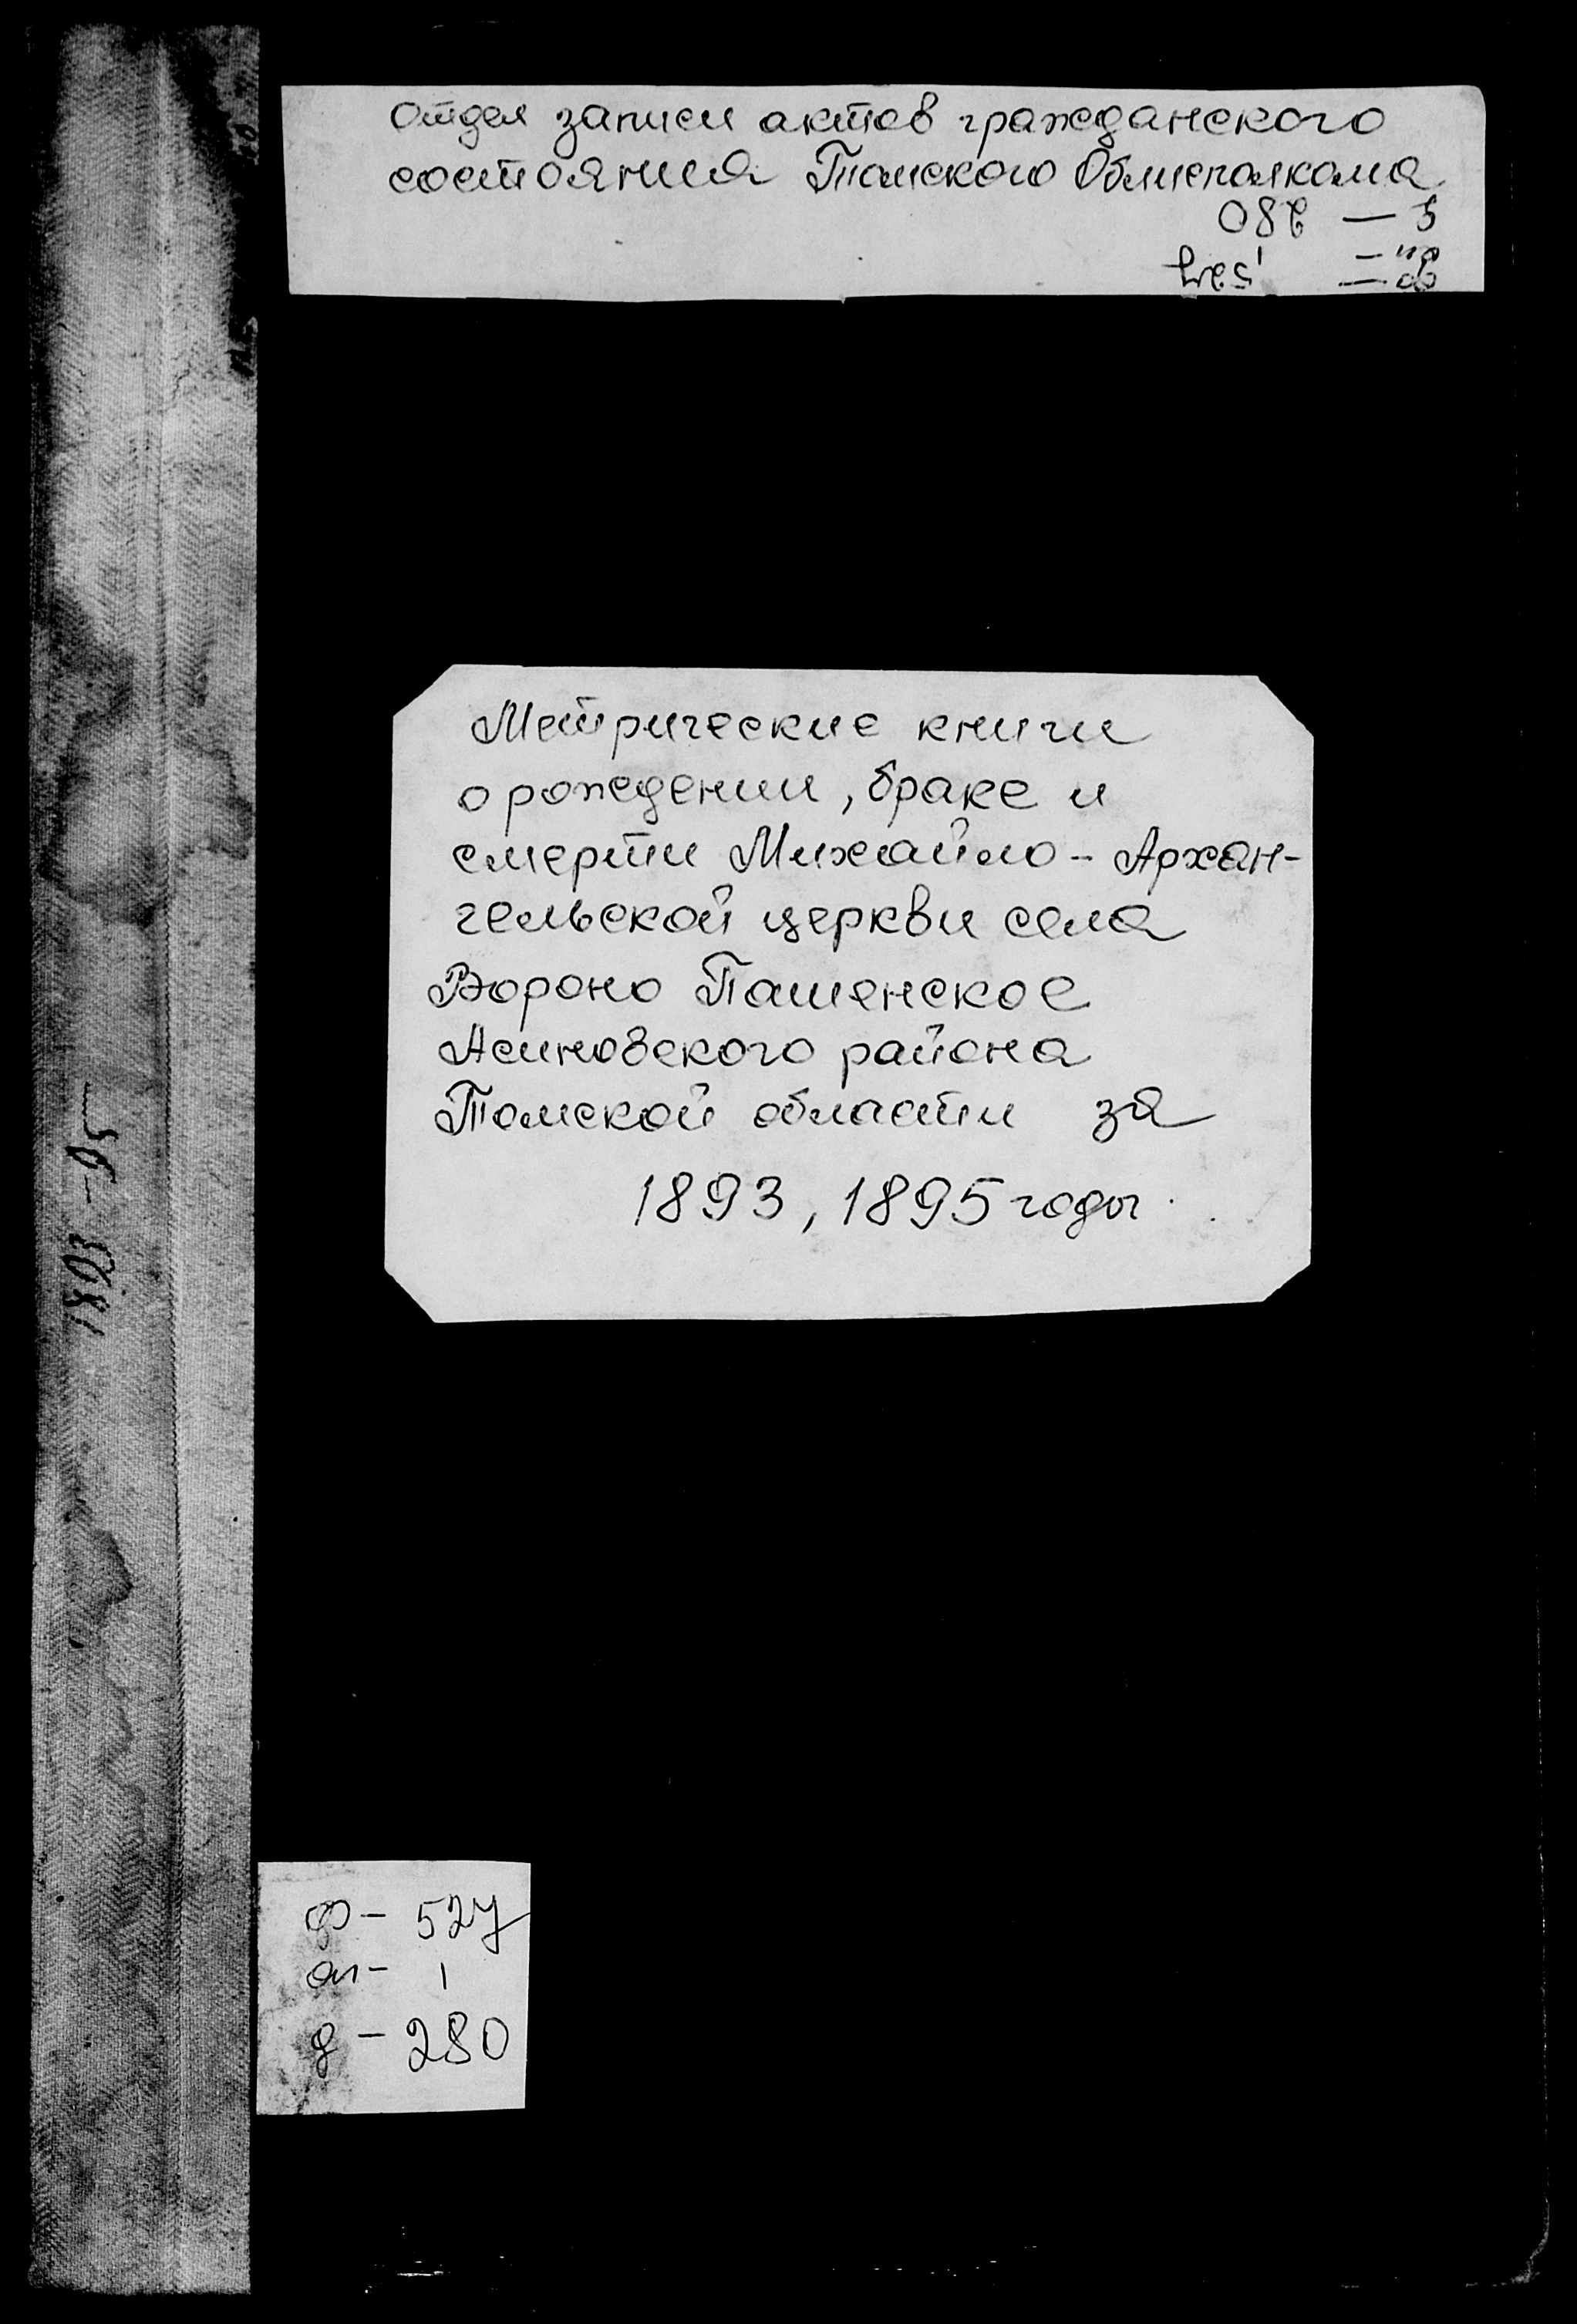 Отдел записи актов гражданского
состояния Томского Облисполкома
д — 280
оп — 1
ф — 527
Метрические книги
о рождении, браке и
смерти Михайло - Архан-
гельской церкви села
Вороно Пашенское
Асиновского района
Томской области за
1893, 1895 годы.
1893 - 95
ф - 527
оп - 1
д - 280